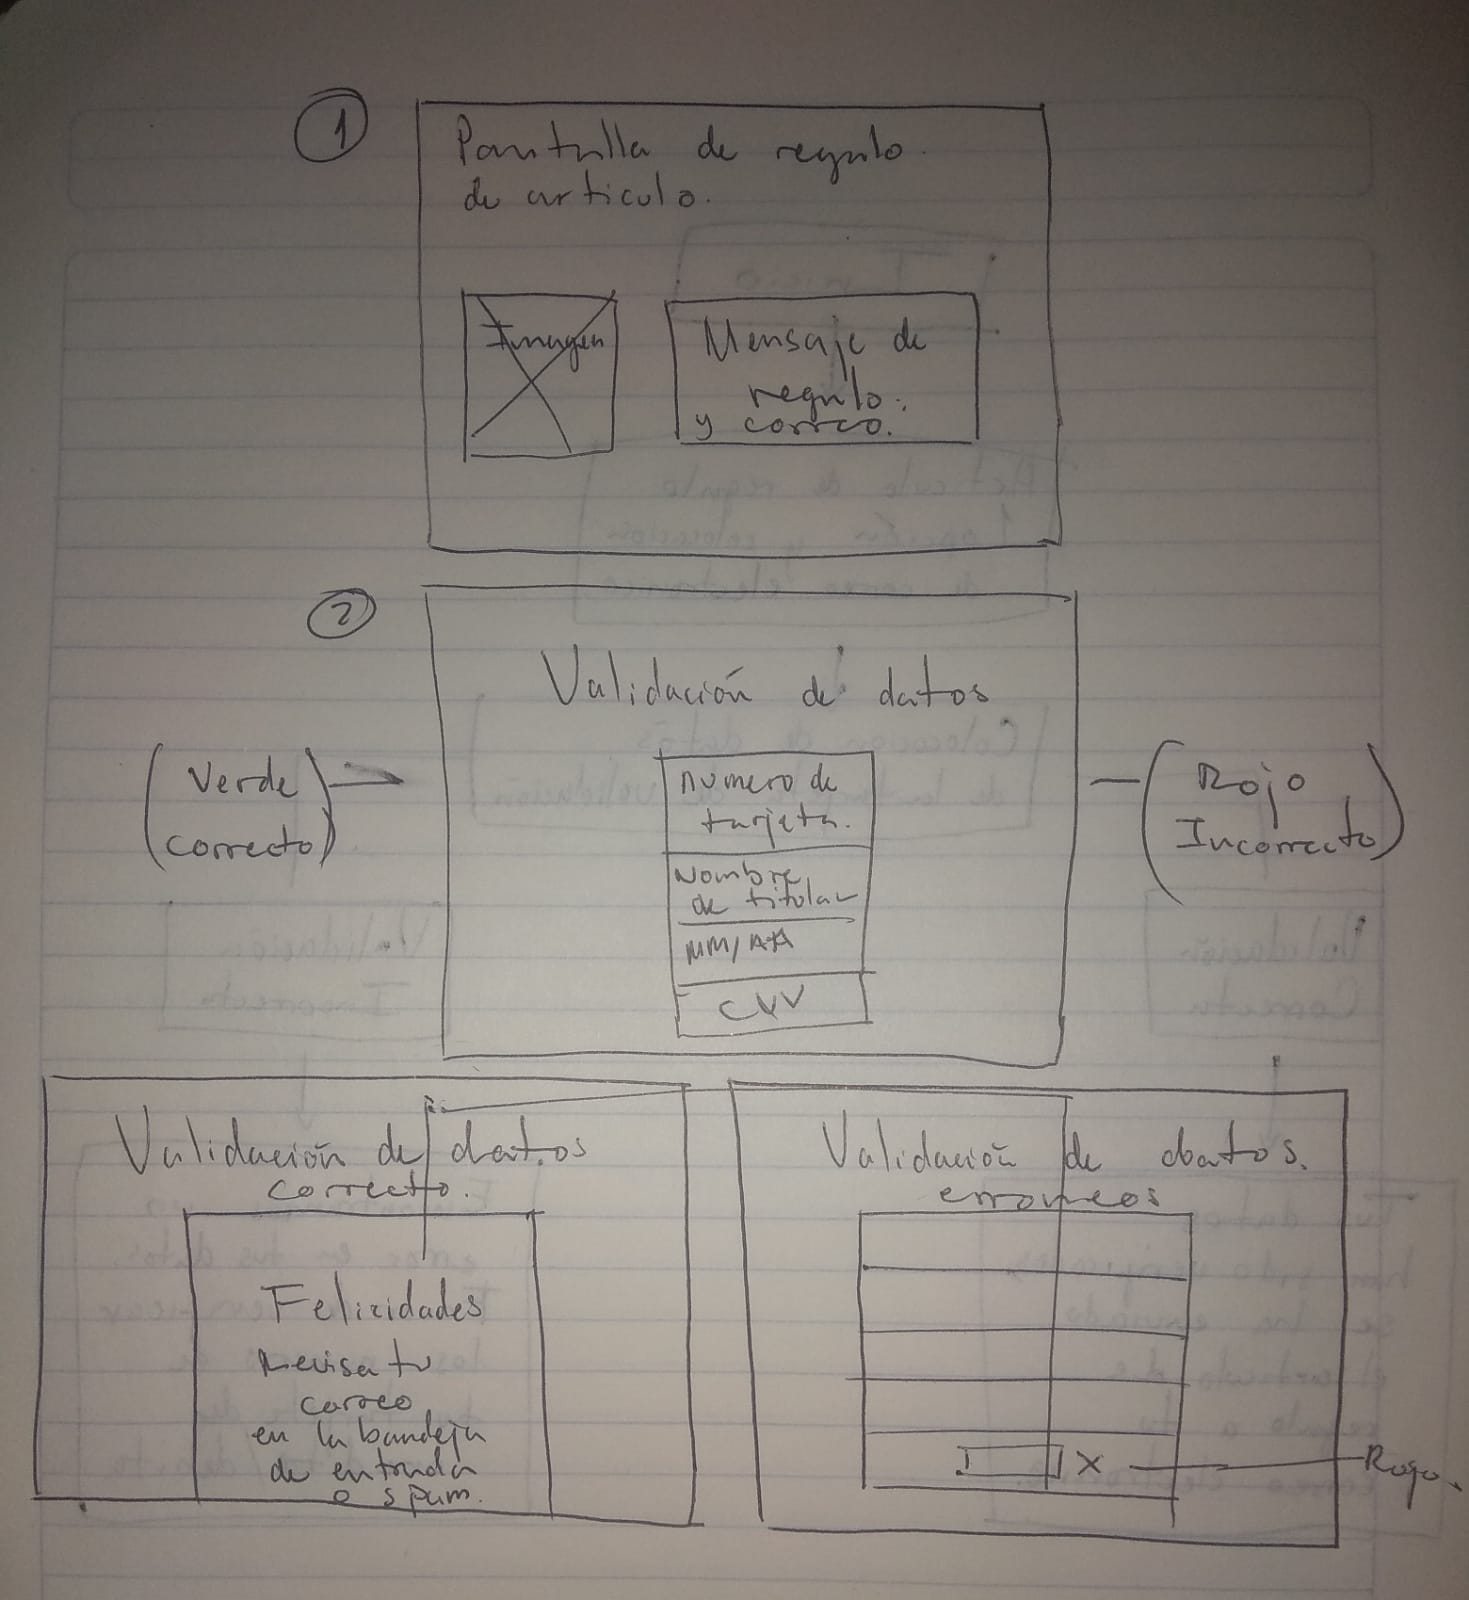 1
Pantalla de regalo.
de articulo.
Imagen
Mensaje de
regalo.
y correo.
2
Validación de datos
(Verde
correcto)
número de
tarjeta.
Nombre
de titular
MM/AA
CVV
(Rojo
Incorrecto)
Validación de datos
correcto.
Felicidades
revisa tu
correo
en la bandeja
de entrada
o spam.
Validación de datos.
erroneos
X
Rojo.